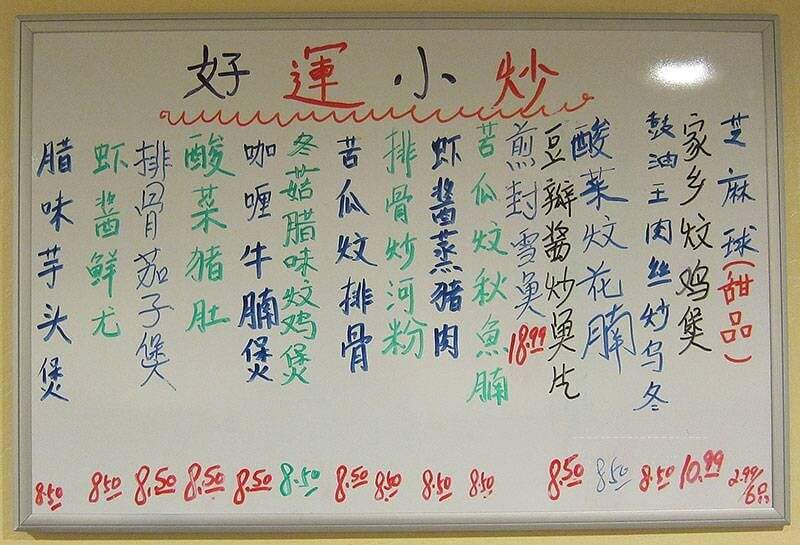 好運小炒
芝麻球(甜品) 2.99/6
家乡炆鸡煲 10.99
豉油王肉丝炒乌冬 8.50
酸菜炆花腩 8.50
豆瓣醬炒魚片 8.50
煎封雪魚 18.99
苦瓜炆秋魚腩 8.50
虾醬蒸猪肉 8.50
排骨炒河粉 8.50
苦瓜炆排骨 8.50
冬菇腊味炆鸡煲 8.50
咖喱牛腩煲 8.50
酸菜猪肚 8.50
排骨茄子煲 8.50
虾醬鲜尤 8.50
腊味芋头煲 8.50